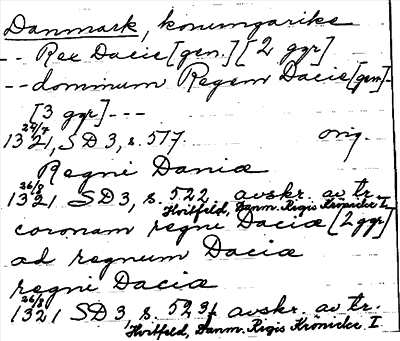 Danmark, konungarike
-- Rex Dacie [gen.] [2 ggr]
-- dominum Regem Dacie [gen]-
[3 ggr] ---
1321 24/7, SD 3, s. 517. orig.
Regni Daniæ
1321 26/8 SD 3, s. 522 avskr. av tr.
Hvitfeld, Danm. Rigis Krönicke I
coronam regni Daciæ [2 ggr]
ad regnum Daciæ
regni Daciæ
1321 26/8 SD 3, s. 523 f avskr. av tr.
Hvitfeld, Danm. Rigis Krönicke I